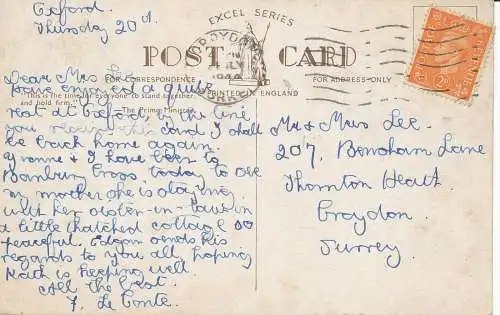 Oxford.
Thursday 20th.
EXCEL SERIES
POST CARD
FOR CORRESPONDENCE
FOR ADDRESS ONLY
"This is the time for everyone to stand together,
and hold firm."
The Prime Minister
PRINTED IN ENGLAND
CROYDON
SURREY
Dear Mrs
have enjoyed a quiet
rest at Oxford, by the time
you receive this card I shall
be back home again.
Yvonne & I have been to
Banbury Cross today to see
my mother she is staying
with her sister-in-law in
a little thatched cottage so
peaceful. Edgar sends his
regards to you all, hoping
Kath is keeping well.
All the best.
F. Le Conte.
Mr & Mrs Lee.
207, Bensham Lane
Thornton Heath.
Croydon.
Surrey.